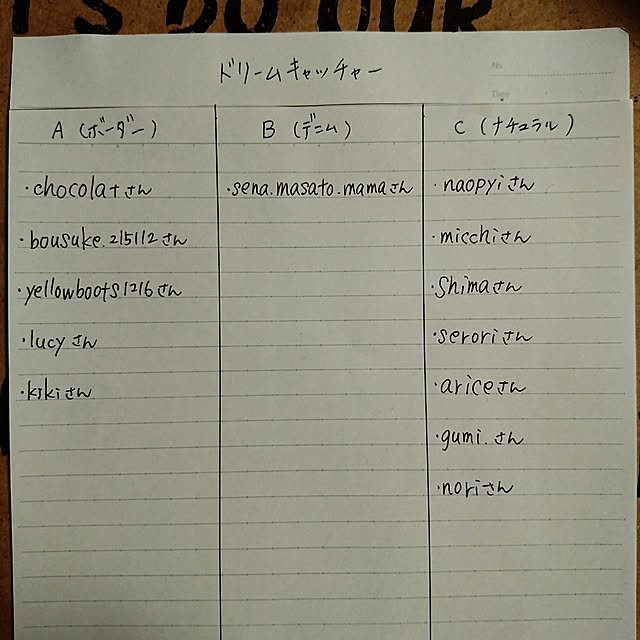 'S DO OUR
ドリームキャッチャー
No.
Date
A (ボーダー)
・chocolaTさん
・bousuke.215112さん
・yellowboots1216さん
・lucyさん
・kikiさん
B (デニム)
・sena.masato.mamaさん
C (ナチュラル)
・naopyiさん
・micchiさん
・Shimaさん
・seroriさん
・ariceさん
・gumi.さん
・noriさん